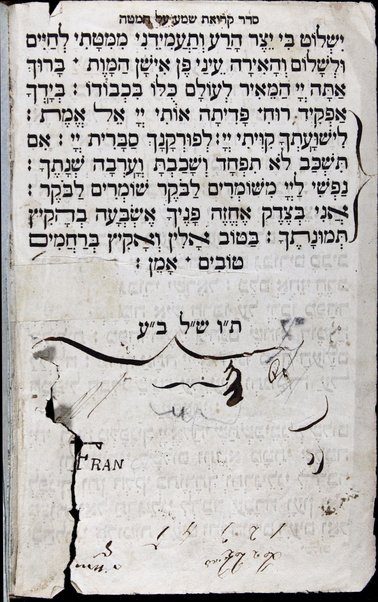 סדר קריאת שמע על המטה
ישלוט בי יצר הרע ותעמידני ממטתי לחיים
ולשלום והאירה עיני פן אישן המות ׃ ברוך
אתה יי המאיר לעולם כלו בכבודו ׃ בידך
אפקיד רוחי פדיתה אותי יי אל אמת ׃
לישועתך קויתי יי ׃ לפורקנך סברית יי ׃ אם
תשכב לא תפחד ושכבת וערבה שנתך ׃
נפשי ליי משומרים לבקר שומרים לבקר ׃
אני בצדק אחזה פניך אשבעה בהקיץ
תמונתך ׃ בטוב אלין ואקיץ ברחמים
טובים ׃ אמן ׃
ת"ו ש"ל ב"ע
FRAN